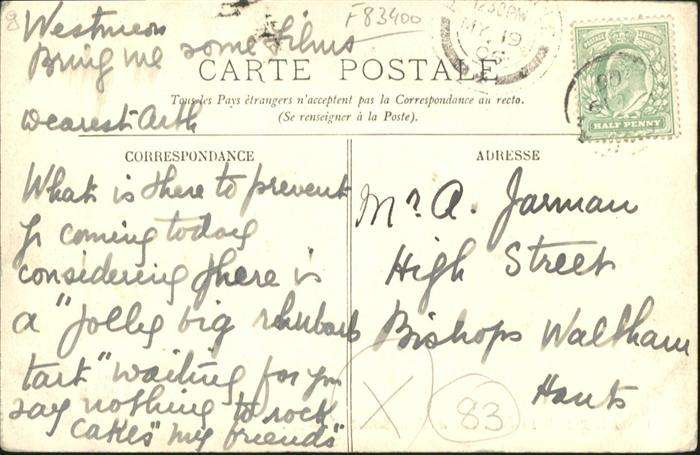 8
F83400
Westmeon
Bring me some films
12.30PM
MY 19
06
CARTE POSTALE
Tous les Pays étrangers n'acceptent pas la Correspondance au recto.
(Se renseigner à la Poste).
HALF PENNY
Dearest Arth
CORRESPONDANCE
What is there to prevent
yr coming today
considering there is
a "jolly big rhubarb
tart" waiting for you
say nothing to rock
cakes "my friends"
ADRESSE
Mr. A. Jarman
High Street
Bishops Waltham
Hants
X
83